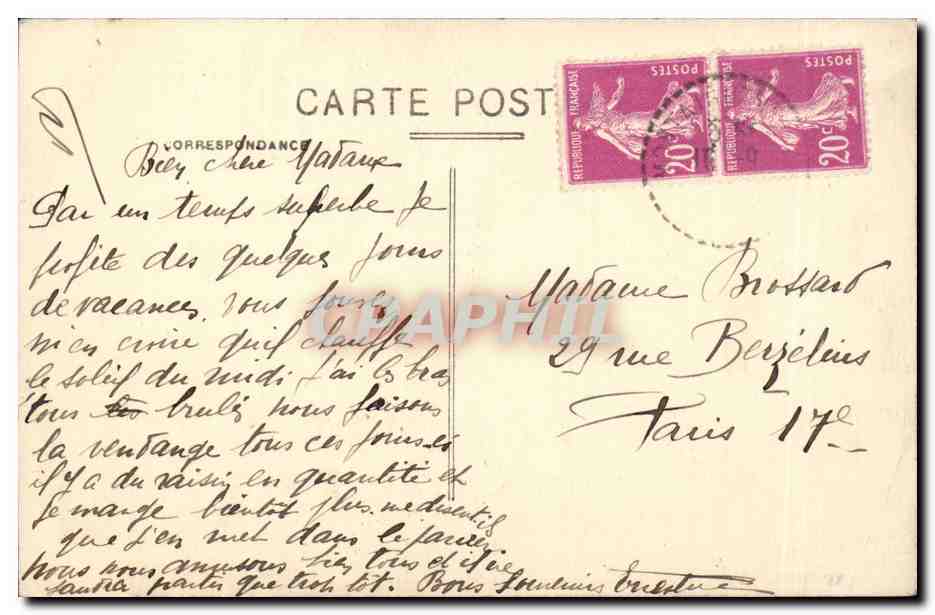 CARTE POST
CORRESPONDANCE
POSTES
REPUBLIQUE FRANÇAISE
20c
POSTES
REPUBLIQUE FRANÇAISE
20c
Bien chère Madame
Par un temps superbe je
profite des quelques jours
de vacances vous pouvez
m'en croire qu'il chauffe
le soleil du midi j'ai les bras
tous les brulés nous faisons
la vendange tous ces jours-ci
il y a du raisin en quantité et
je mange bientôt plus me disent ils
que j'en met dans le panier
nous nous amusons bien tous et il me
faudra partir que trop tot. Bons Souvenirs
Madame Brossard
29 rue Berzélius
Paris 17e
CPAPHIL